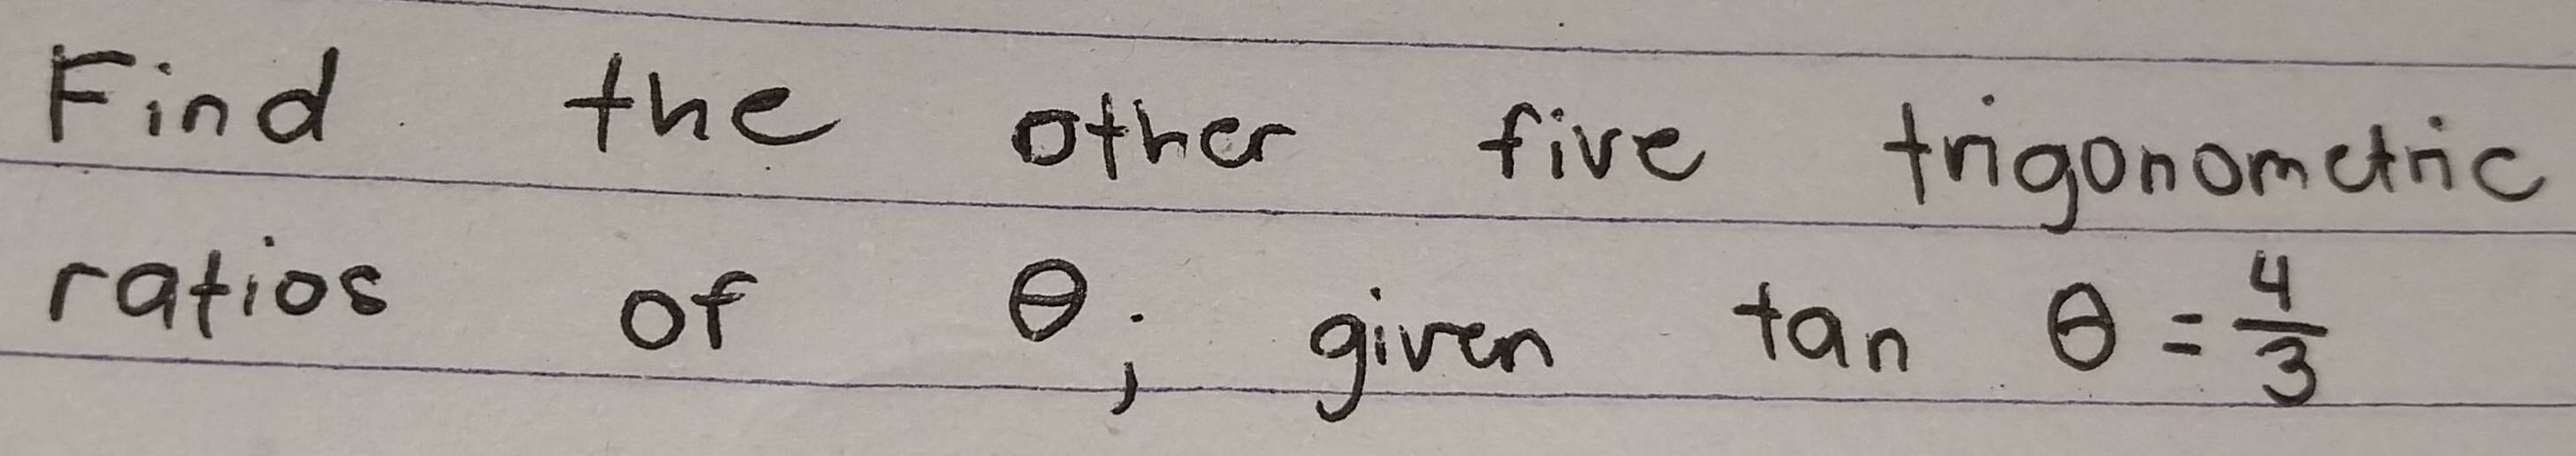 Find the other five trigonometric
ratios of θ; given tan θ = 4/3